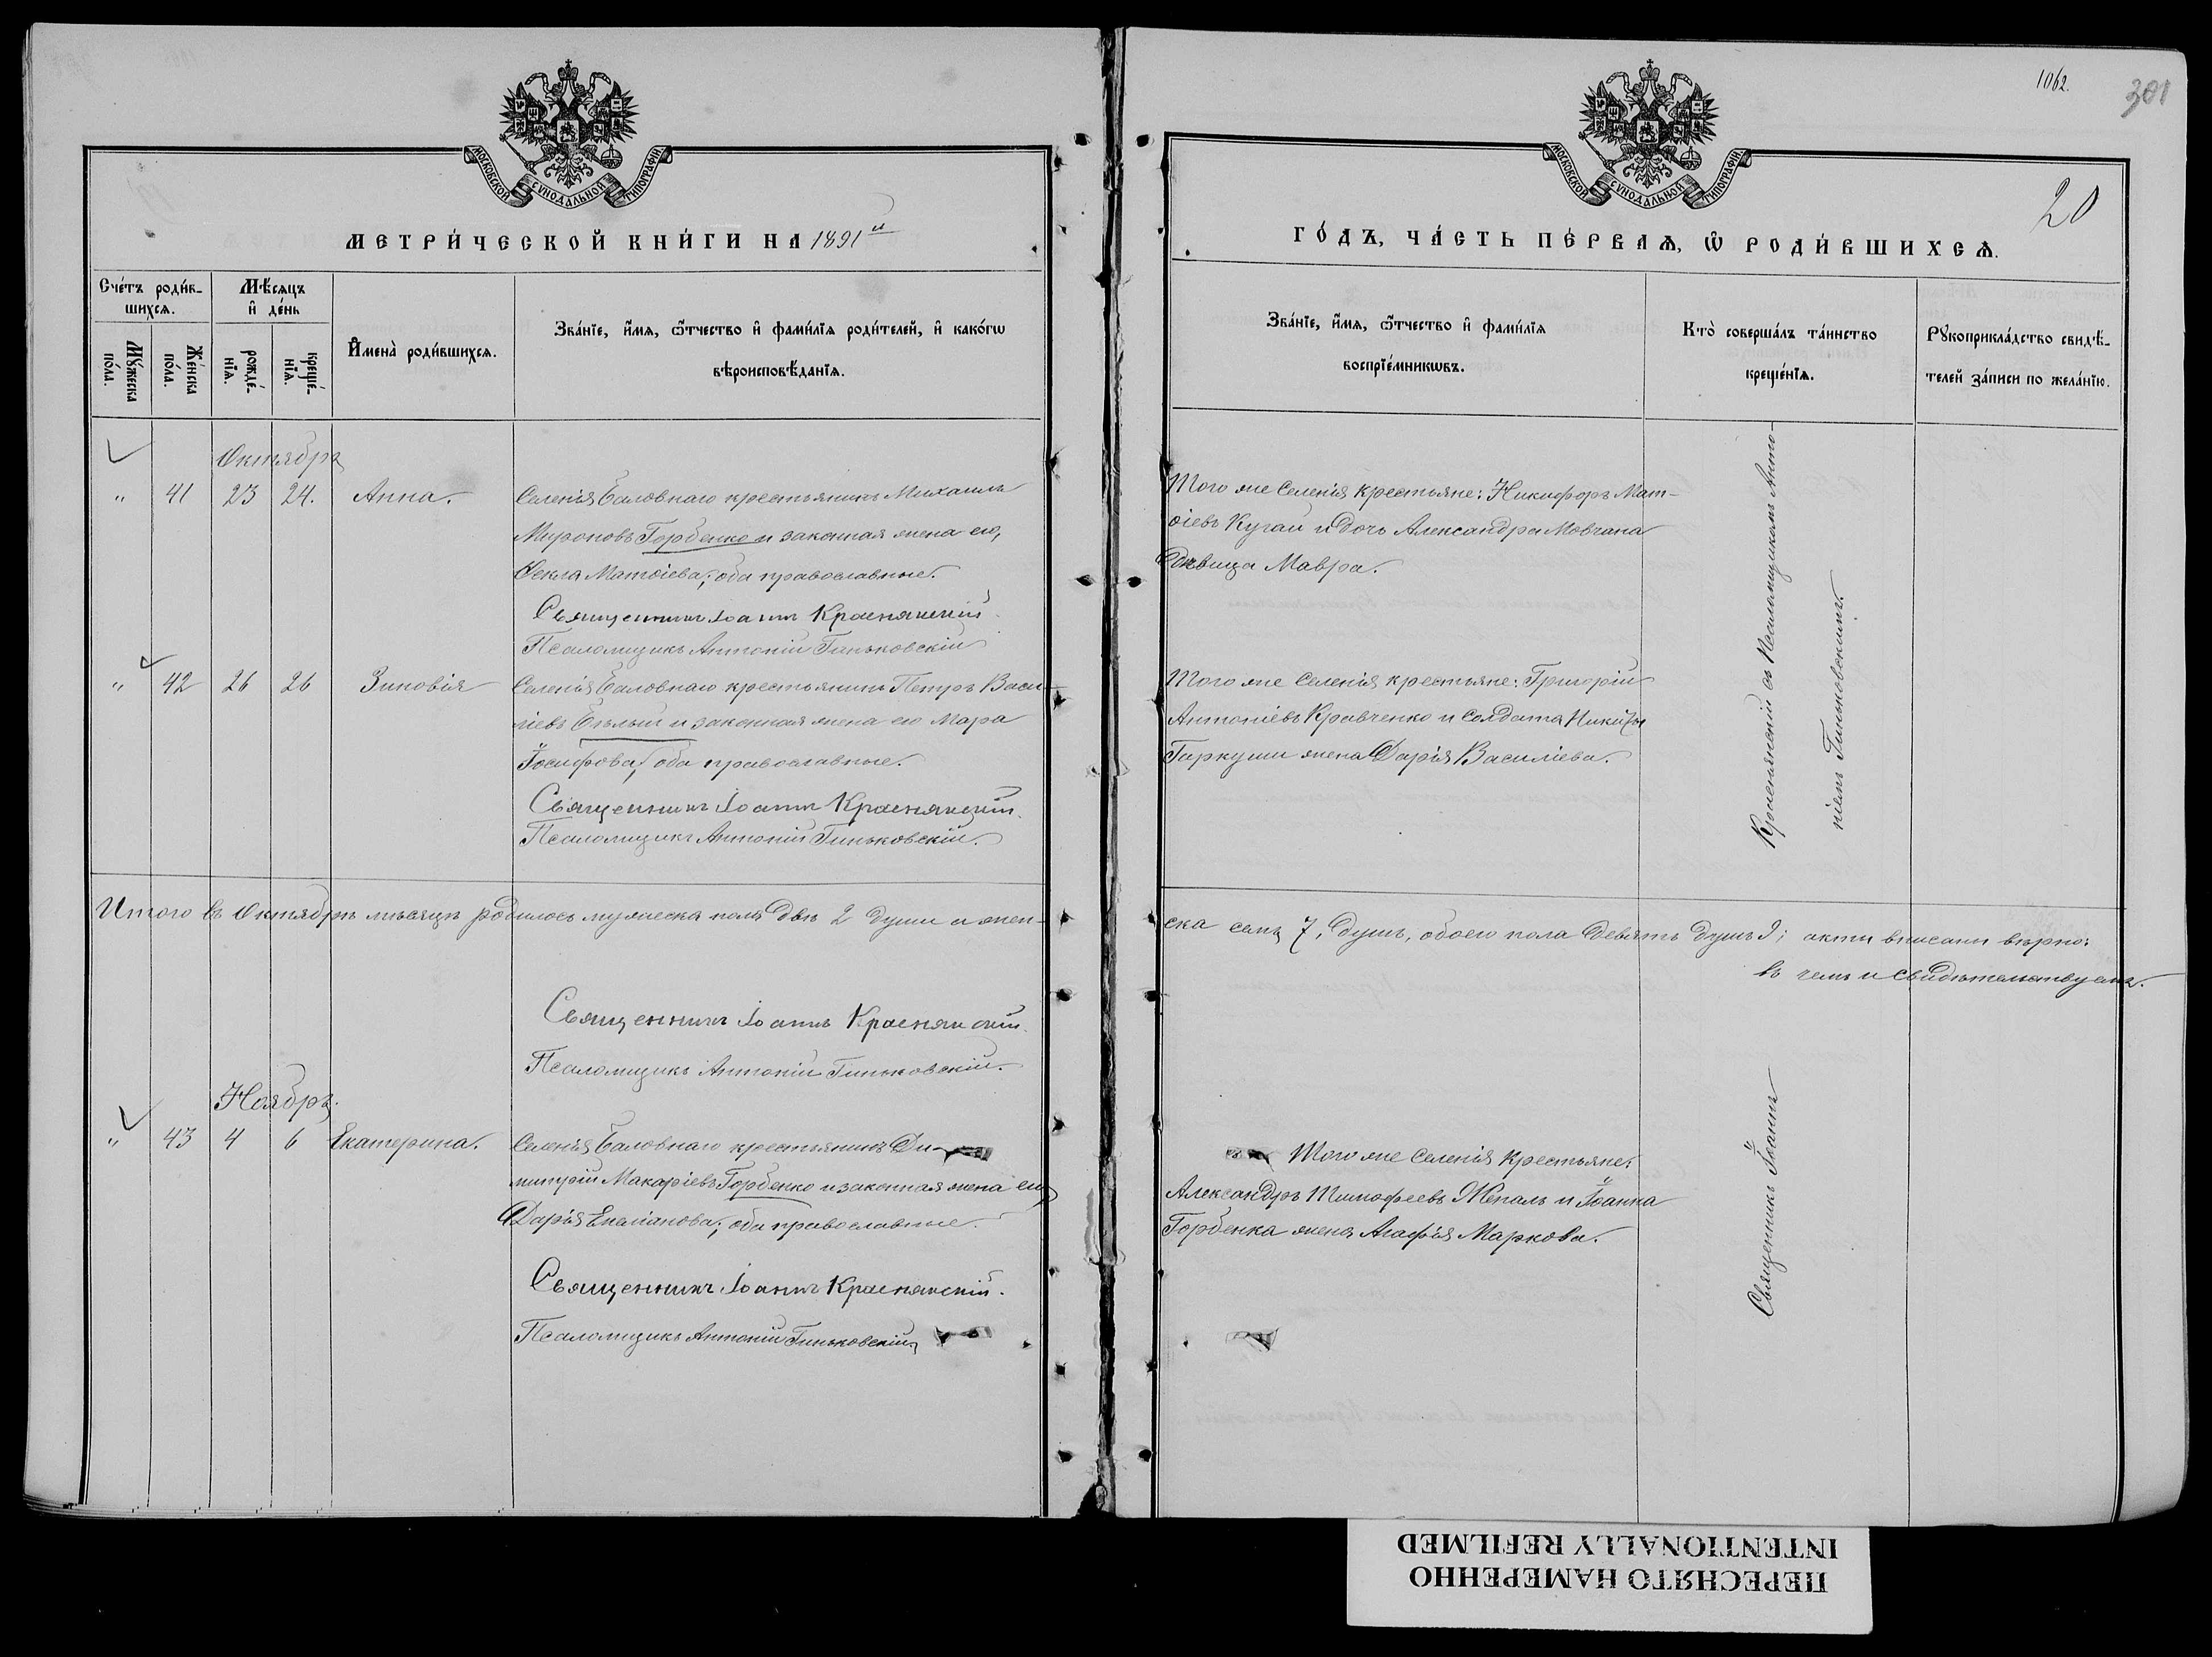 МОСКОВСКОЙ СѴНОДАЛЬНОЙ ТИПОГРАФІИ.
МЕТРИ́ЧЕСКОЙ КНИ́ГИ НА 1891й
Сче́тъ роди́в-
шихсѧ.
Мꙋ́жеска
по́ла.
Же́нска
по́ла.
Мѣ́сѧцъ
и҆ де́нь
рожде́-
нїѧ.
креще́-
нїѧ.
И҆мена̀ роди́вшихсѧ.
Зва́нїе, и҆́мѧ, ѻ҆́тчество и҆ фами́лїѧ роди́телей, и҆ како́гѡ
вѣроисповѣ́данїѧ.
Октябрь
" 41 23 24. Анна. Селенія Баловнаго крестьянинъ Михаилъ
Мироновъ Горбенко и законная жена его,
Ѳекла Матѳіева; оба православные.
Священникъ Іоаннъ Краснянскій.
Псаломщикъ Антоній Гиньковскій
" 42 26 26 Зиновія Селенія Баловнаго крестьянинъ Петръ Васи-
ліевъ Бѣлый и законная жена его Мара
Іосифова, оба православные.
Священникъ Іоаннъ Краснянскій.
Псаломщикъ Антоній Гиньковскій.
Итого въ Октябрѣ мѣсяцѣ родилось мужеска пола двѣ 2 души а жен-
Священникъ Іоаннъ Краснянскій.
Псаломщикъ Антоній Гиньковскій.
Ноябрь.
" 43 4 6 Екатерина. Селенія Баловнаго крестьянинъ Ди-
митрій Макаріевъ Горбенко и законная жена его
Дарія Емеліанова; оба православные.
Священникъ Іоаннъ Краснянскій.
Псаломщикъ Антоній Гиньковскій
1062.
301
МОСКОВСКОЙ СѴНОДАЛЬНОЙ ТИПОГРАФІИ.
20
ГО́ДЪ, ЧА́СТЬ ПЕ́РВАѦ, Ѡ҆ РОДИ́ВШИХСѦ.
Зва́нїе, и҆́мѧ, ѻ҆́тчество и҆ фами́лїѧ
воспрїе́мникѡвъ.
Кто̀ соверша́лъ та́инство
креще́нїѧ.
Рꙋкоприкла́дство свидѣ́-
телей за́писи по жела́нїю.
Того же селенія крестьяне: Никифоръ Мат-
ѳіевъ Кугай и дочь Александра Мовчана
дѣвица Мавра.
Того же селенія крестьяне: Григорій
Антоніевъ Кравченко и солдата Никиты
Гаркуши жена Дарія Василіева.
Краснянскій съ Псаломщикомъ Анто-
ніемъ Гиньковскимъ.
ска семь 7, душъ, обоего пола девять душъ 9; акты вписаны вѣрно:
въ чемъ и свидѣтельствуемъ.
Того же селенія крестьяне:
Александръ Тимофеевъ Жепаль и Іоанна
Горбенка жена Агафія Маркова.
Священникъ Іоаннъ
ПЕРЕСНЯТО НАМЕРЕННО
INTENTIONALLY REFILMED